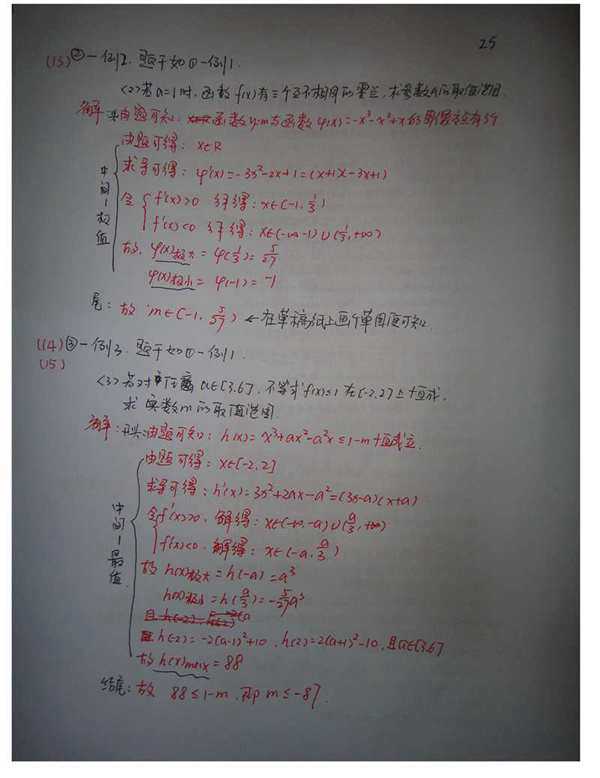 25
(13) ②一例2. 题干如①一例1.
<2>若a=1时,函数f(x)有三个互不相同的零点,求实数m的取值范围
解 头:由题可知: 函数y=m与函数φ(x)=-x³-x²+x的图像交点有3个
由题可得: x∈R
求导可得: φ'(x)=-3x²-2x+1=(x+1)(-3x+1)
令 { f'(x)>0 解得: x∈(-1, 1/3)
f'(x)<0 解得: x∈(-∞,-1)∪(1/3,+∞)
故. φ(x)极大=φ(1/3)=5/27
φ(x)极小=φ(-1)=-1
中间一极值
尾: 故 m∈(-1, 5/27) ←在草稿纸上画个草图便可知
(14) ③一例3. 题干如①一例1.
(15)
<3>若对任意a∈[3,6], 不等式f(x)≤1在[-2,2]上恒成.
求实数m的取值范围
解: 头:由题可知: h(x)=x³+ax²-a²x≤1-m恒成立.
由题可得: x∈[-2,2]
求导可得: h'(x)=3x²+2ax-a²=(3x-a)(x+a)
令 { f'(x)>0. 解得: x∈(-∞,-a)∪(a/3,+∞)
f'(x)<0. 解得: x∈(-a, a/3)
故 h(x)极大=h(-a)=a³
h(x)极小=h(a/3)=-5/27a³
且 h(-2)=-2(a-1)²+10, h(2)=2(a+1)²-10, 且a∈[3,6]
故 h(x)max=88
中间一最值
结尾: 故 88≤1-m, 即 m≤-87.